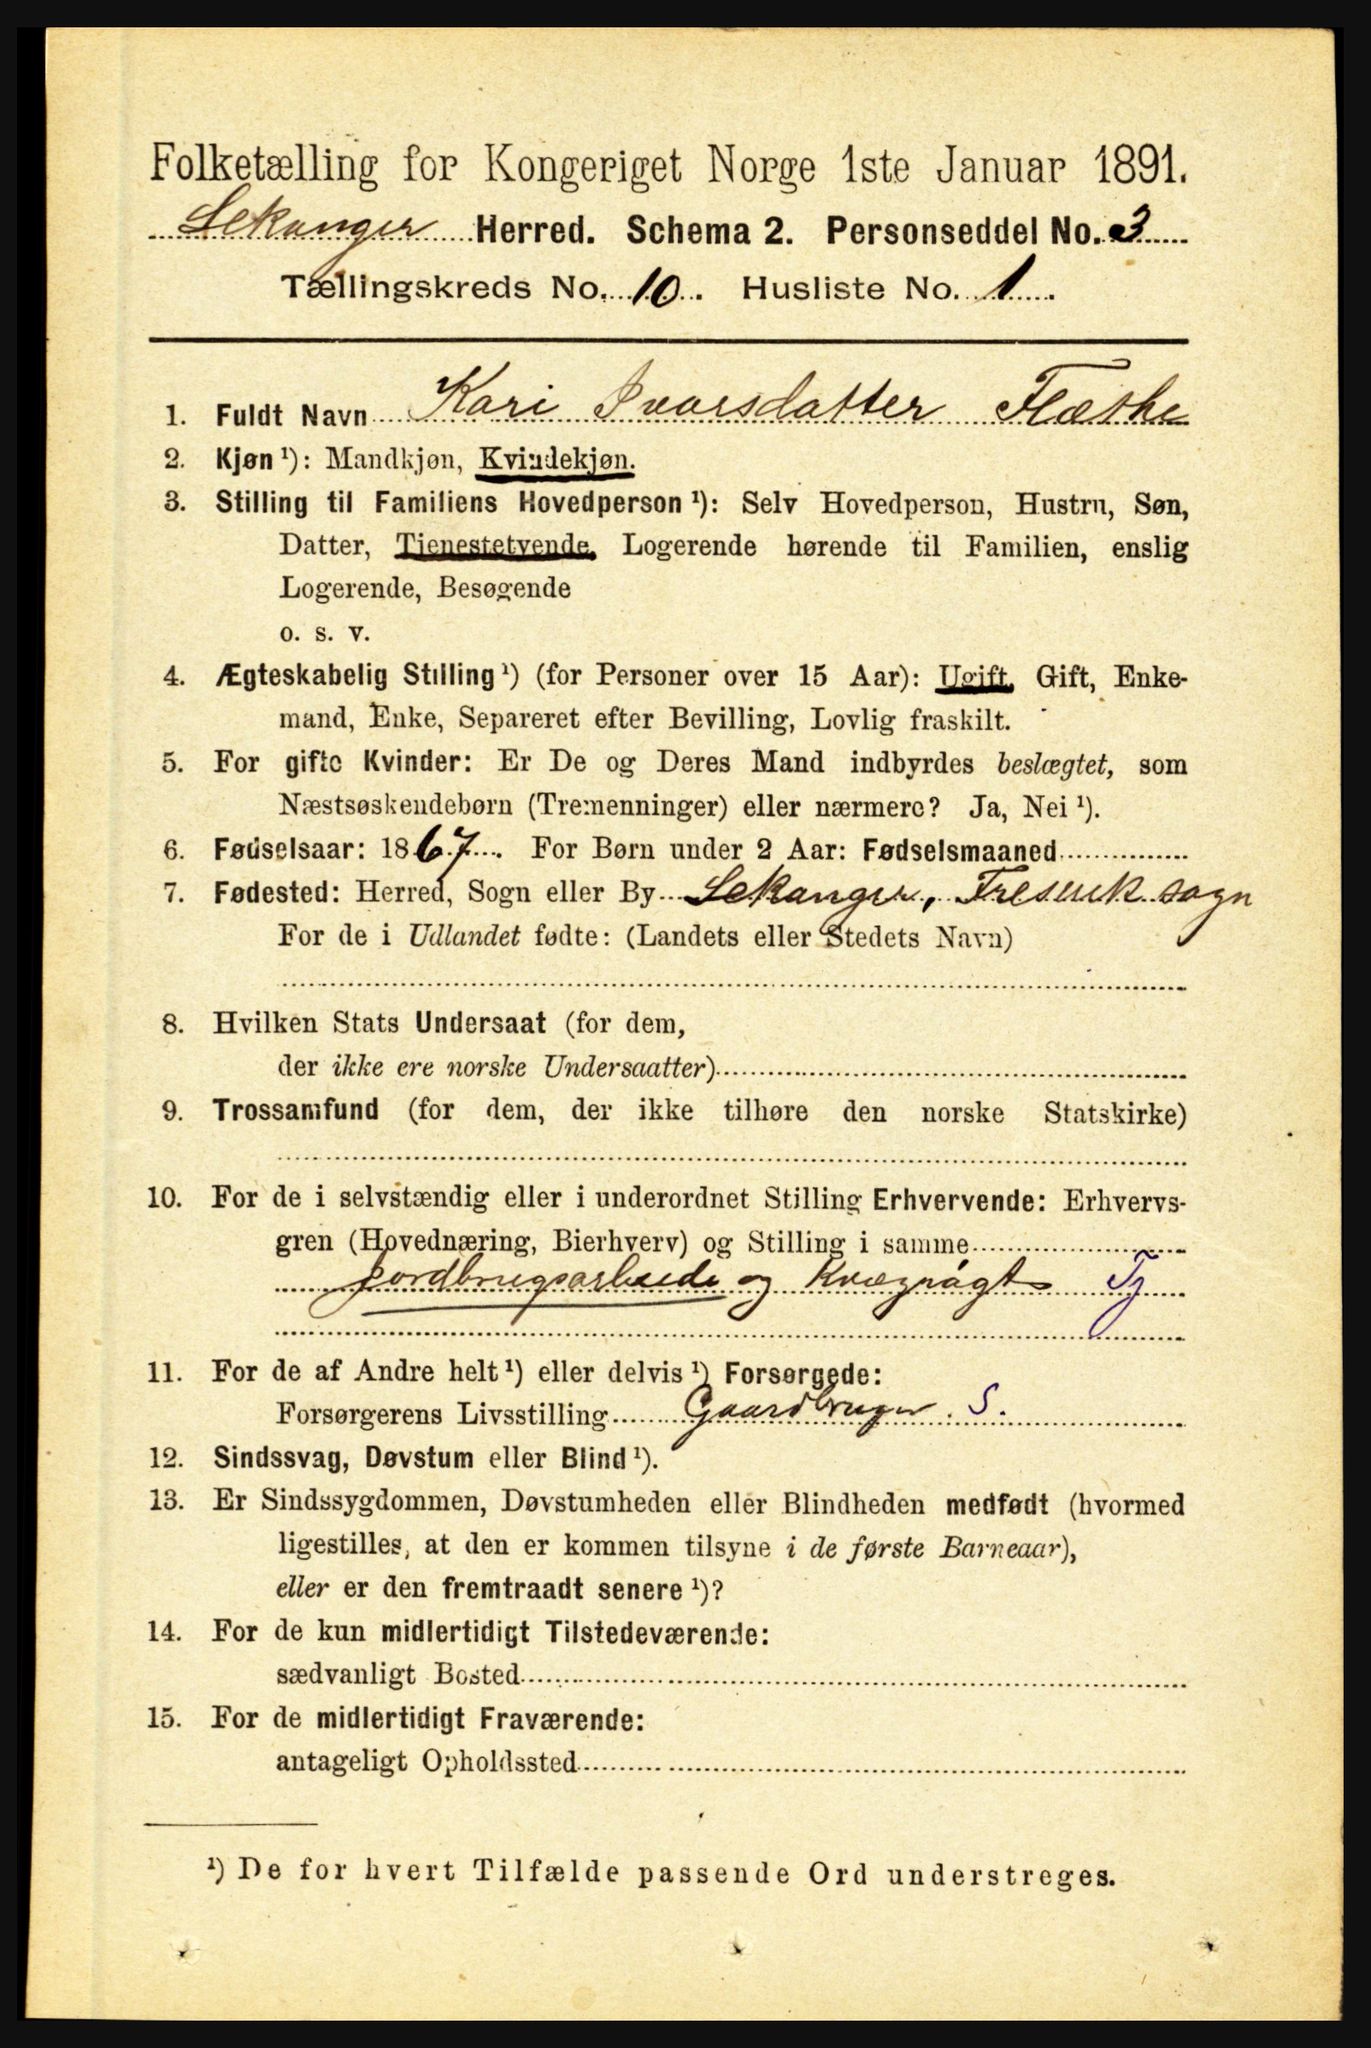 Folketælling for Kongeriget Norge 1ste Januar 1891.
Lekanger Herred. Schema 2. Personseddel No. 3
Tællingskreds No. 10. Husliste No. 1.
1. Fuldt Navn Kari Ivarsdatter Flæthe
2. Kjøn ¹): Mandkjøn, Kvindekjøn.
3. Stilling til Familiens Hovedperson ¹): Selv Hovedperson, Hustru, Søn,
Datter, Tjenestetyende, Logerende hørende til Familien, enslig
Logerende, Besøgende
o. s. v.
4. Ægteskabelig Stilling ¹) (for Personer over 15 Aar): Ugift, Gift, Enke-
mand, Enke, Separeret efter Bevilling, Lovlig fraskilt.
5. For gifte Kvinder: Er De og Deres Mand indbyrdes beslægtet, som
Næstsøskendebørn (Tremenninger) eller nærmere? Ja, Nei ¹).
6. Fødselsaar: 1867. For Børn under 2 Aar: Fødselsmaaned
7. Fødested: Herred, Sogn eller By Lekanger, Fresenk sogn
For de i Udlandet fødte: (Landets eller Stedets Navn)
8. Hvilken Stats Undersaat (for dem,
der ikke ere norske Undersaatter)
9. Trossamfund (for dem, der ikke tilhøre den norske Statskirke)
10. For de i selvstændig eller i underordnet Stilling Erhvervende: Erhvervs-
gren (Hovednæring, Bierhverv) og Stilling i samme
Jordbrugsarbeide og Kvægrøgt Tj
11. For de af Andre helt ¹) eller delvis ¹) Forsørgede:
Forsørgerens Livsstilling Gaardbruger. S.
12. Sindssvag, Døvstum eller Blind ¹).
13. Er Sindssygdommen, Døvstumheden eller Blindheden medfødt (hvormed
ligestilles, at den er kommen tilsyne i de første Barneaar),
eller er den fremtraadt senere ¹)?
14. For de kun midlertidigt Tilstedeværende:
sædvanligt Bosted
15. For de midlertidigt Fraværende:
antageligt Opholdssted
¹) De for hvert Tilfælde passende Ord understreges.